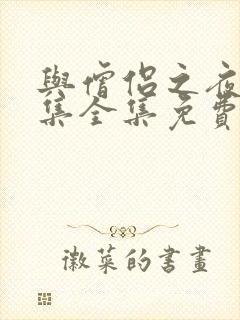 與僧侶之夜
集全集免費
徽菜的書畫